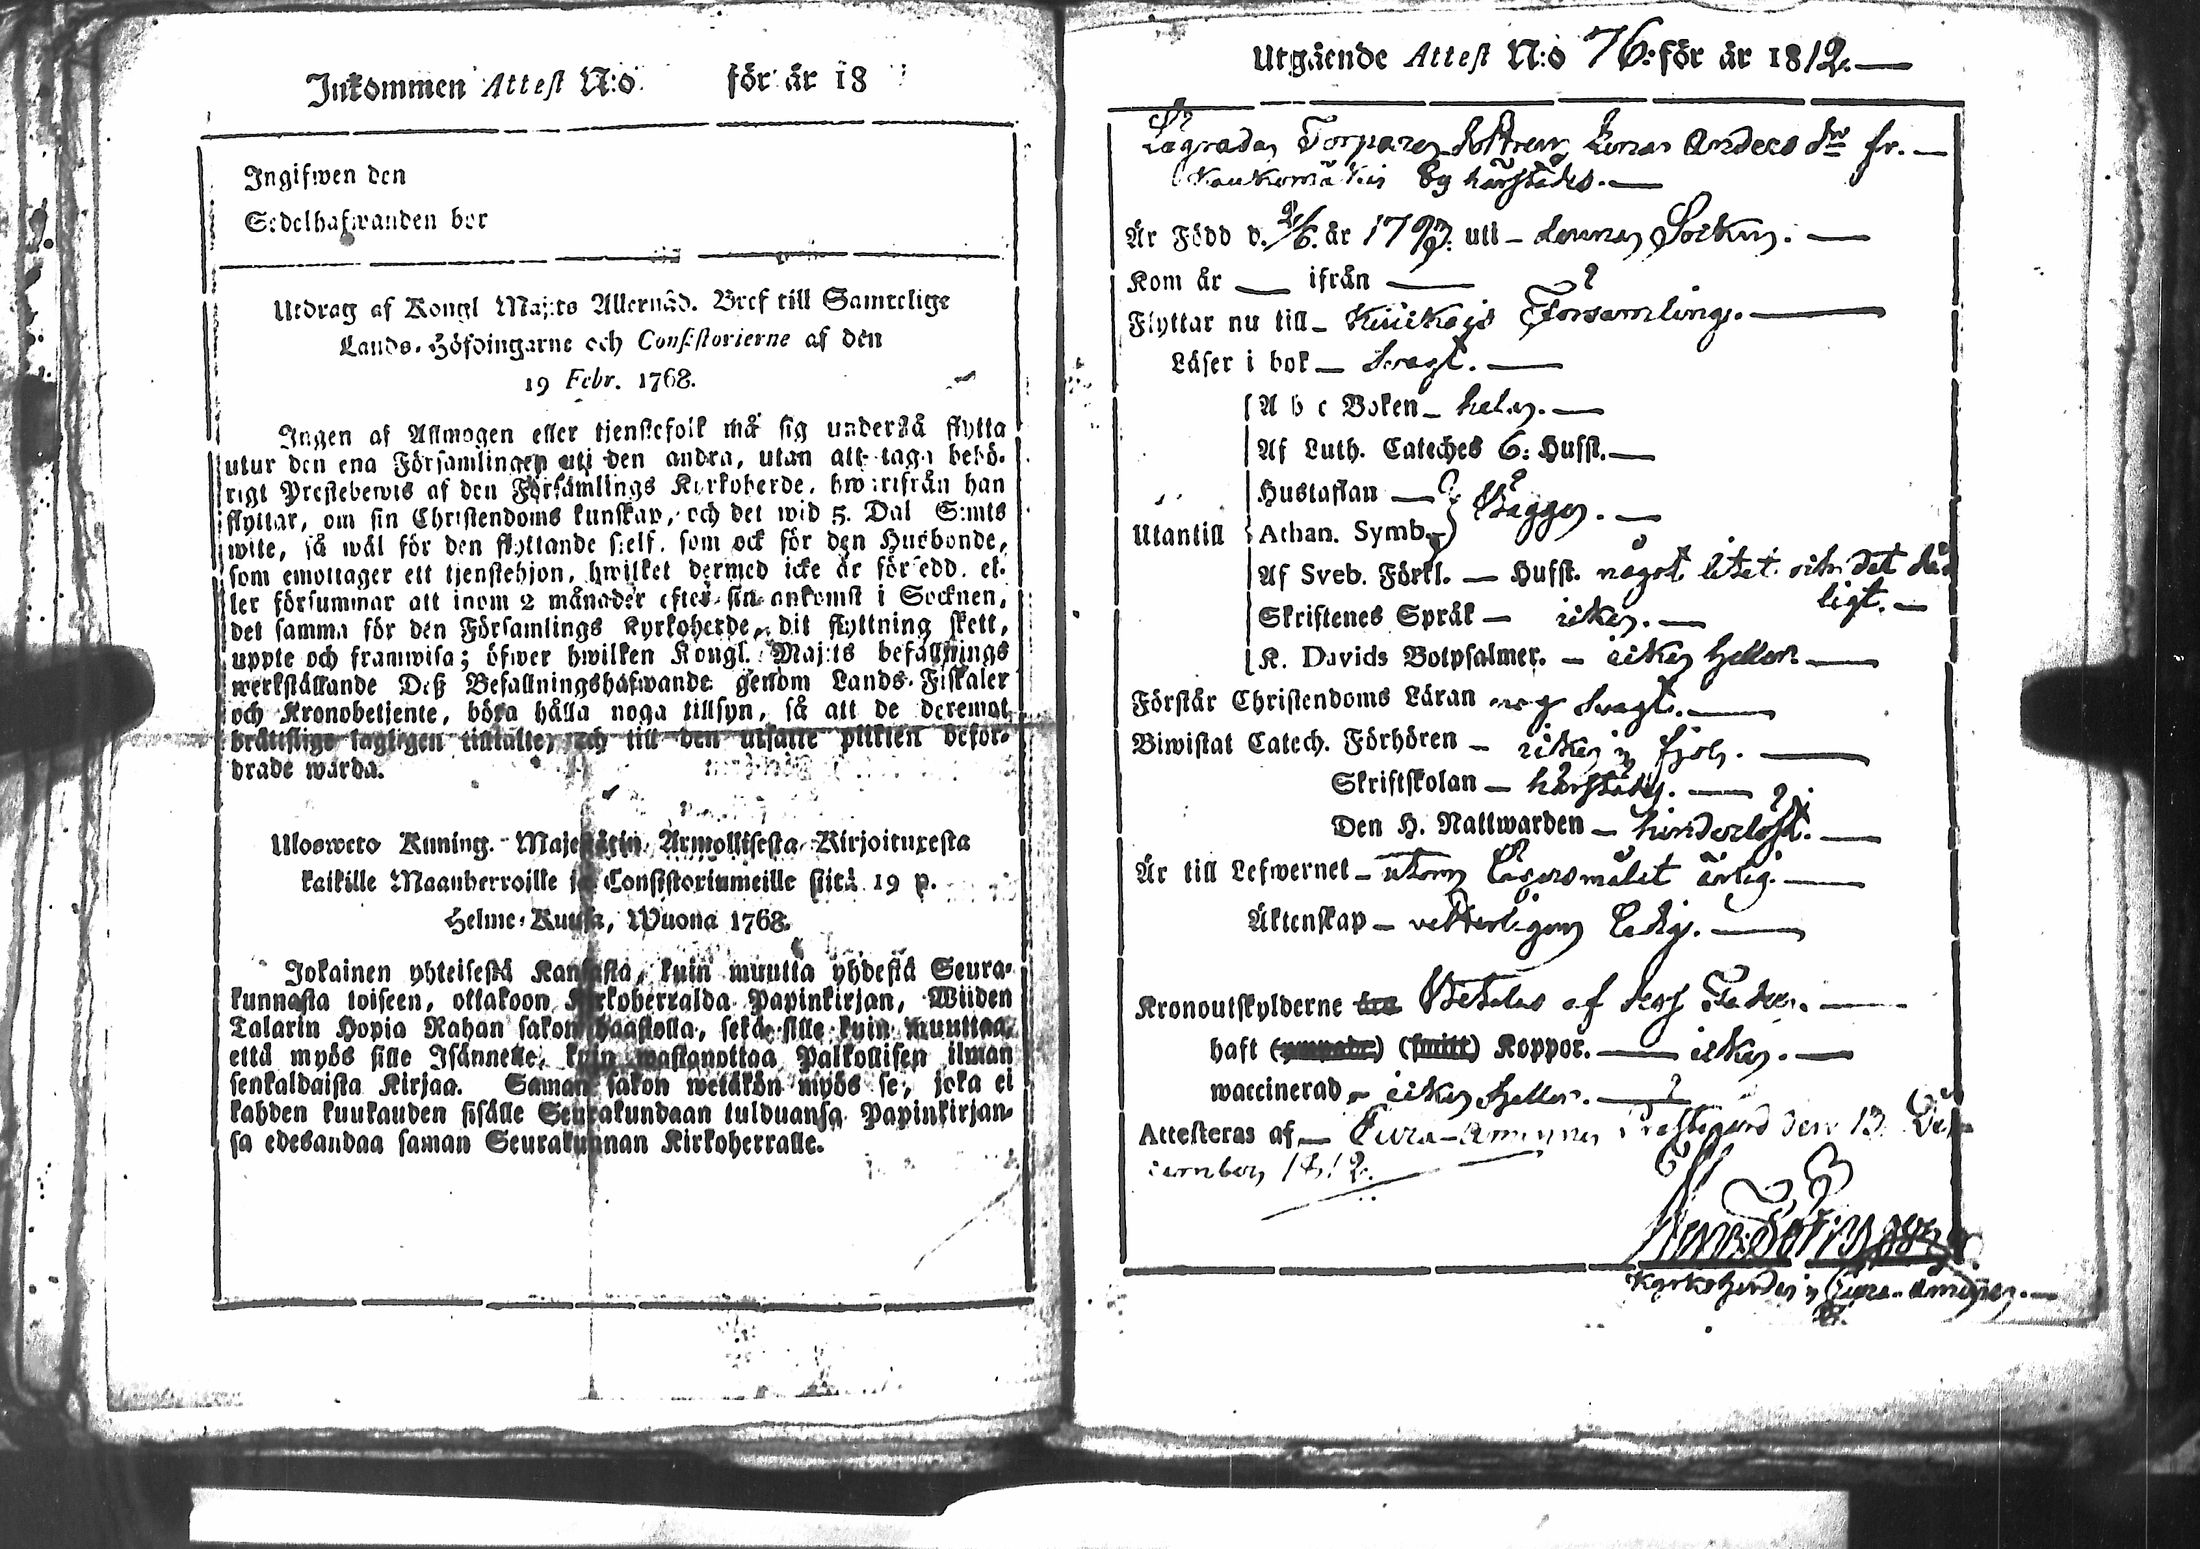 Inkommen Attest N:o för år 18
Ingifwen den
Sedelhafwanden bor
Utdrag af Kongl Maj:ts Allernåd. Bref till Samtelige
Lands-Höfdingarne och Consistorierne af den
19 Febr. 1768.
Ingen af Allmogen eller tjenstefolk må sig understå flytta
utur den ena Församlingen uti den andra, utan att taga behö-
rigt Prestebewis af den Församlings Kyrkoherde, hwarifrån han
flyttar, om sin Christendoms kunskap, och det wid 5. Dal S:mts
wite, så wäl för den flyttande sielf, som ock för den Husbonde,
som emottager ett tjenstehjon, hwilket dermed icke är försedd, el-
ler försummar att inom 2 månader efter sin ankomst i Socknen,
det samma för den Församlings Kyrkoherde, dit flyttning skett,
uppte och framwisa; öfwer hwilken Kongl. Maj:ts befallnings
werkställande Deß Befallningshafwande genom Lands-Fiskaler
och Kronobetjente, böra hålla noga tillsyn, så att de deremot
brättslige lagligen tilltalte, och till den utsatte plikten befor-
drade warda.
Uloswero Kuning. Majestätin Armollisesta Kirjoituxesta
kaikille Maanherroille ja Consistoriumeille siitä 19 p.
Helme-Kuusa, Wuona 1768.
Jokainen yhteisestä Kansasta, kuin muutta yhdestä Seura-
kunnasta toiseen, ottakoon Kirkoherralda Papinkirjan, Wiiden
Talarin Hopia Rahan sakon haastolla, sekä sille kuin muuttaa,
että myös sille Isännelle, kuin wastanottaa Palkollisen ilman
senkaldaista Kirjaa. Saman sakon wetäkön myös se, joka ei
kahden kuukauden sisälle Seurakundaan tulduansa Papinkirjan-
sa edesandaa saman Seurakunnan Kirkoherralle.
Utgående Attest N:o 76: för år 1812.
Lägrada Torpare Lena Anders dr fr.
Kaukomäki By härstädes.
Är Född d. år 179 uti denna Sockn.
Kom år — ifrån —
Flyttar nu till Kiukais Församling.
Läser i bok svagt.
A b c Boken hela.
Af Luth. Cateches 6: Hufst.
Hustaflan
Utantill Athan. Symb. Bägge.
Af Sveb. Förkl. — Hufst. något litet och det då-
ligt.
Skriftenes Språk — icke.
K. Davids Botpsalmer. — icke heller
Förstår Christendoms Läran nog svagt.
Biwistat Catech. Förhören — icke i fjol.
Skriftskolan — härstädes.
Den H. Nattwarden — hinderlöst.
Är till Lefwernet — utom Lägersmålet ärlig.
Äktenskap — vetterligen Ledig.
Kronoutskylderne Betalas af dess Fader.
haft Koppor. — icke.
waccinerad — icke heller.
Attesteras af Eura-Aminne Prestegård den 13 De-
cember 1812.
Kyrkoherde i Eura-Aminne.